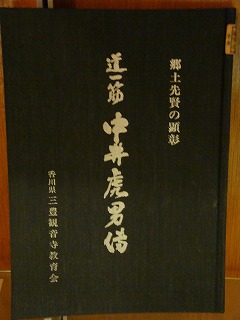 郷土先賢の顕彰
道一筋 中井虎男伝
香川県 三豊観音寺教育会